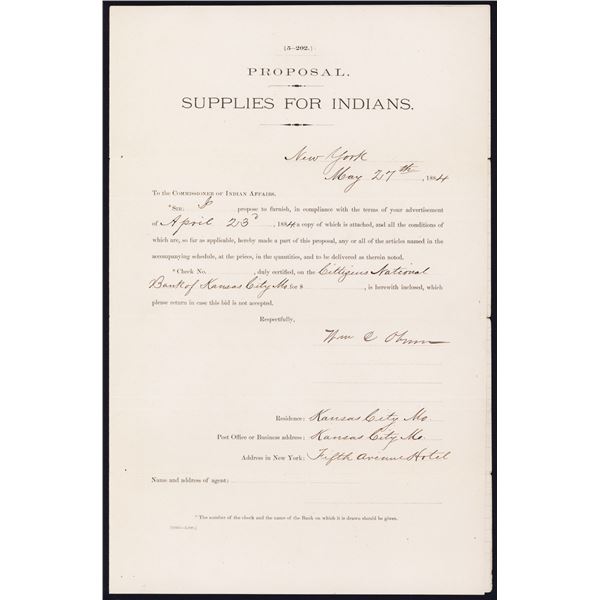 (5–202.)
PROPOSAL.
SUPPLIES FOR INDIANS.
New York
May 27th, 1884
To the Commissioner of Indian Affairs.
*Sir: I propose to furnish, in compliance with the terms of your advertisement
of April 23d, 1884 a copy of which is attached, and all the conditions of
which are, so far as applicable, hereby made a part of this proposal, any or all of the articles named in the
accompanying schedule, at the prices, in the quantities, and to be delivered as therein noted.
*Check No. , duly certified, on the Citizens National
Bank of Kansas City Mo. for $ , is herewith inclosed, which
please return in case this bid is not accepted.
Respectfully,
Wm C
Residence: Kansas City Mo.
Post Office or Business address: Kansas City Mo.
Address in New York: Fifth Avenue Hotel
Name and address of agent:
*The number of the check and the name of the Bank on which it is drawn should be given.